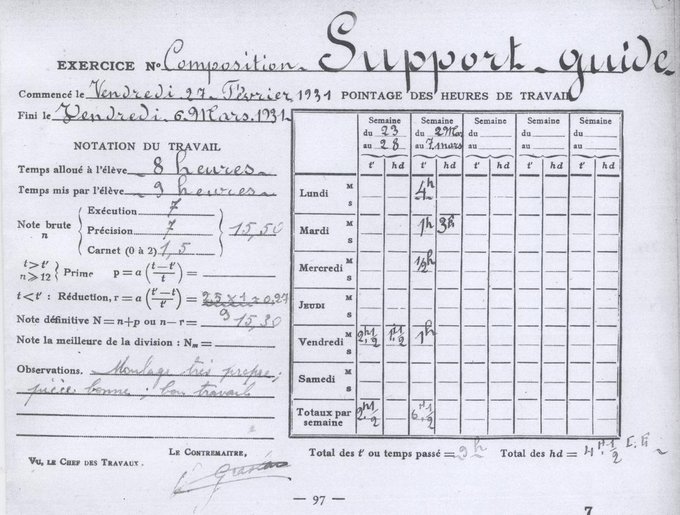 EXERCICE No Composition. Support-guide
Commencé le Vendredi 27 Février 1931 POINTAGE DES HEURES DE TRAVAIL
Fini le Vendredi 6 Mars 1931
NOTATION DU TRAVAIL
Temps alloué à l'élève 8 heures
Temps mis par l'élève 9 heures
Note brute n
Exécution 7
Précision 7
Carnet (0 à 2) 1,5
15,50
t > t' n ≥ 12 Prime p = a (t – t' / t) =
t < t' : Réduction, r = a (t' – t / t') = 2,5 x 1 = 0,27
9
Note définitive N = n + p ou n – r = 15,30
Note la meilleure de la division : Nm =
Observations. Montage très propre;
pièce bonne; bon travail
Semaine du 23 au 28
Semaine du 2 Mars au 7 mars
Semaine du au
Semaine du au
Semaine du au
t' hd t' hd t' hd t' hd t' hd
Lundi M S 4h
Mardi M S 1h 3h
Mercredi M S 1/2h
JEUDI M S
Vendredi M S 2h1/2 1h1/2 1h
Samedi M S
Totaux par semaine 2h1/2 6h1/2
Total des t' ou temps passé = 9h Total des hd = 4h1/2
VU, LE CHEF DES TRAVAUX. LE CONTREMAITRE,
— 97 —
7